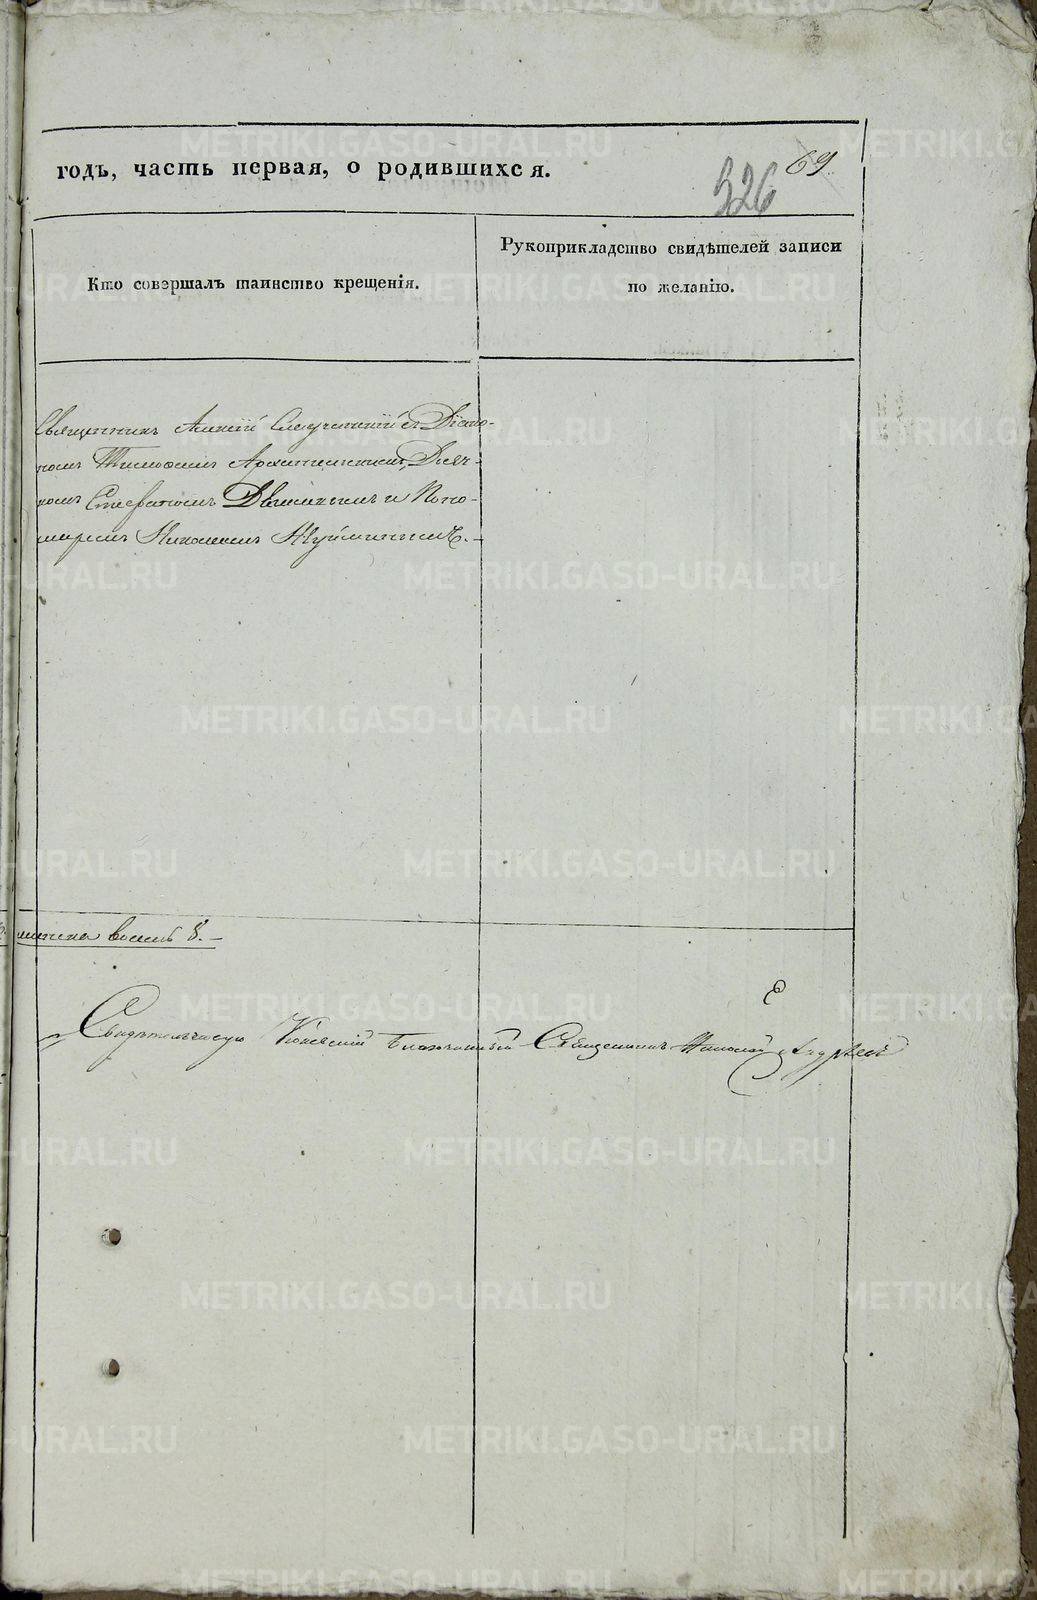 годъ, часть первая, о родившихся.
326 69.
Кто совершалъ таинство крещенія.
Рукоприкладство свидѣтелей записи
по желанію.
Священникъ Алексій съ Діако-
номъ Тимофеемъ Дьяч-
комъ Стефаномъ и Поно-
маремъ Николаемъ
восемь 8.
Свидѣтельствую Благочинный Священникъ Николай
METRIKI.GASO-URAL.RU